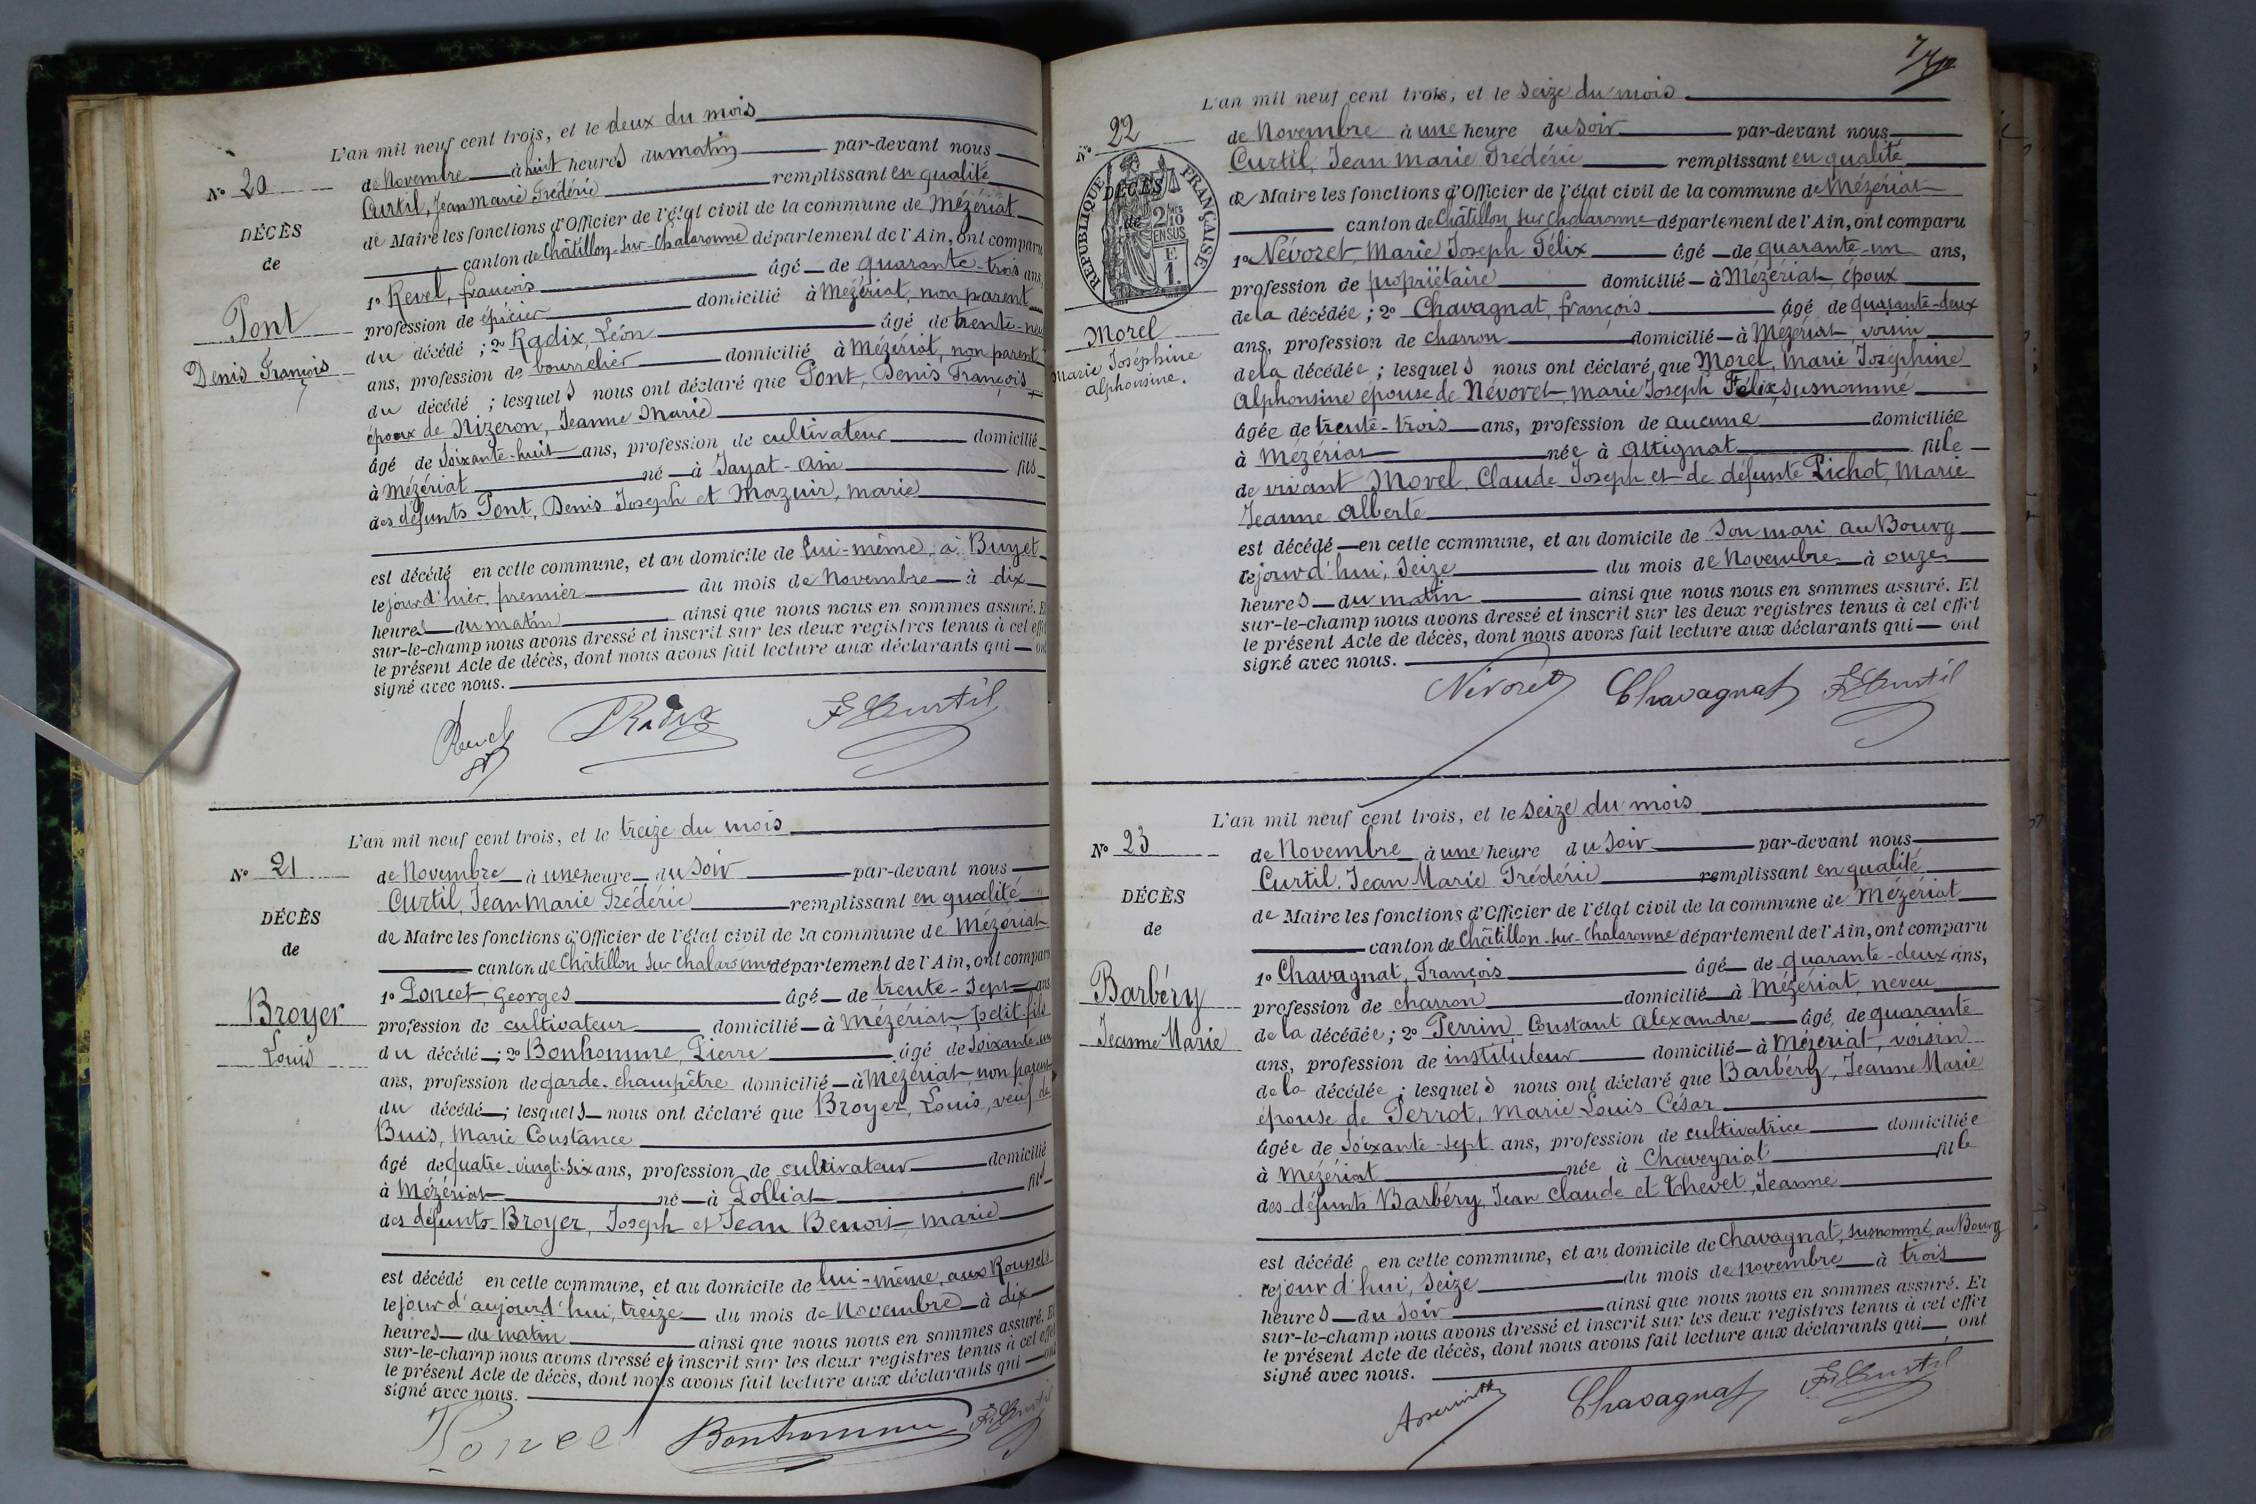 L'an mil neuf cent trois, et le deux du mois
de Novembre à huit heures du matin par-devant nous
Curtil, Jean Marie Frédéric remplissant en qualité
de Maire les fonctions d'Officier de l'état civil de la commune de Mézériat
canton de Châtillon-sur-Chalaronne département de l'Ain, ont comparu
1º Revel, françois âgé de quarante-trois ans,
profession de épicier domicilié à Mézériat, non parent
du décédé ; 2º Radix, Léon âgé de trente-neuf
ans, profession de bourrelier domicilié à Mézériat, non parent
du décédé ; lesquels nous ont déclaré que Pont, Denis François
époux de Nizeron, Jeanne Marie
âgé de soixante-huit ans, profession de cultivateur domicilié
à Mézériat né à Jayat-Ain fils
des défunts Pont, Denis Joseph et Mazuir, marie
est décédé en cette commune, et au domicile de lui-même, à Buyet
le jour d'hier, premier du mois de Novembre à dix
heures du matin ainsi que nous nous en sommes assuré. Et
sur-le-champ nous avons dressé et inscrit sur les deux registres tenus à cet effet
le présent Acte de décès, dont nous avons fait lecture aux déclarants qui ont
signé avec nous.
Revel Radix F Curtil
Nº 20
DÉCÈS
de
Pont
Denis François
L'an mil neuf cent trois, et le treize du mois
de Novembre à une heure du soir par-devant nous
Curtil, Jean Marie Frédéric remplissant en qualité
de Maire les fonctions d'Officier de l'état civil de la commune de Mézériat
canton de Châtillon sur Chalaronne département de l'Ain, ont comparu
1º Poncet, Georges âgé de trente-sept ans
profession de cultivateur domicilié à Mézériat, petit-fils
du décédé ; 2º Bonhomme, Pierre âgé de soixante un
ans, profession de garde-champêtre domicilié à Mézériat, non parent
du décédé ; lesquels nous ont déclaré que Broyer, Louis, veuf de
Buis, Marie Constance
âgé de quatre-vingt-six ans, profession de cultivateur domicilié
à Mézériat né à Polliat fils
des défunts Broyer, Joseph et Jean Benoit marie
est décédé en cette commune, et au domicile de lui-même, aux Roussels
le jour d'aujourd'hui, treize du mois de Novembre à dix
heures du matin ainsi que nous nous en sommes assuré. Et
sur-le-champ nous avons dressé et inscrit sur les deux registres tenus à cet effet
le présent Acte de décès, dont nous avons fait lecture aux déclarants qui ont
signé avec nous.
Poncet Bonhomme F Curtil
Nº 21
DÉCÈS
de
Broyer
Louis
L'an mil neuf cent trois, et le seize du mois
de Novembre à une heure du soir par-devant nous
Curtil, Jean marie Frédéric remplissant en qualité
de Maire les fonctions d'Officier de l'état civil de la commune de Mézériat
canton de Châtillon sur Chalaronne département de l'Ain, ont comparu
1º Névoret, Marie Joseph Félix âgé de quarante-un ans,
profession de propriétaire domicilié à Mézériat époux
de la décédée ; 2º Chavagnat, françois âgé de quarante-deux
ans, profession de charron domicilié à Mézériat, voisin
de la décédée ; lesquels nous ont déclaré que Morel, Marie Joséphine
Alphonsine épouse de Névoret marie Joseph Félix susnommé
âgée de trente-trois ans, profession de aucune domiciliée
à Mézériat née à Attignat fille
de vivant Morel, Claude Joseph et de défunte Pichot, Marie
Jeanne Alberte
est décédé en cette commune, et au domicile de son mari au Bourg
ce jourd'hui, seize du mois de Novembre à onze
heures du matin ainsi que nous nous en sommes assuré. Et
sur-le-champ nous avons dressé et inscrit sur les deux registres tenus à cet effet
le présent Acte de décès, dont nous avons fait lecture aux déclarants qui ont
signé avec nous.
Névoret Chavagnat F Curtil
Nº 22
RÉPUBLIQUE FRANÇAISE
DÉCÈS
de
Morel
Marie Joséphine
Alphonsine.
L'an mil neuf cent trois, et le seize du mois
de Novembre à une heure du soir par-devant nous
Curtil, Jean Marie Frédéric remplissant en qualité
de Maire les fonctions d'Officier de l'état civil de la commune de Mézériat
canton de Châtillon-sur-Chalaronne département de l'Ain, ont comparu
1º Chavagnat, François âgé de quarante-deux ans,
profession de charron domicilié à Mézériat, neveu
de la décédée ; 2º Perrin, Constant Alexandre âgé de quarante
ans, profession de instituteur domicilié à Mézériat, voisin
de la décédée ; lesquels nous ont déclaré que Barbéry, Jeanne Marie
épouse de Perrot, Marie Louis César
âgée de soixante-sept ans, profession de cultivatrice domiciliée
à Mézériat née à Chaveyriat fille
des défunts Barbéry, Jean Claude et Thevet, Jeanne
est décédé en cette commune, et au domicile de Chavagnat, susnommé, au Bourg
ce jour d'hui, seize du mois de novembre à trois
heures du soir ainsi que nous nous en sommes assuré. Et
sur-le-champ nous avons dressé et inscrit sur les deux registres tenus à cet effet
le présent Acte de décès, dont nous avons fait lecture aux déclarants qui ont
signé avec nous.
Chavagnat F Curtil
Nº 23
DÉCÈS
de
Barbéry
Jeanne Marie